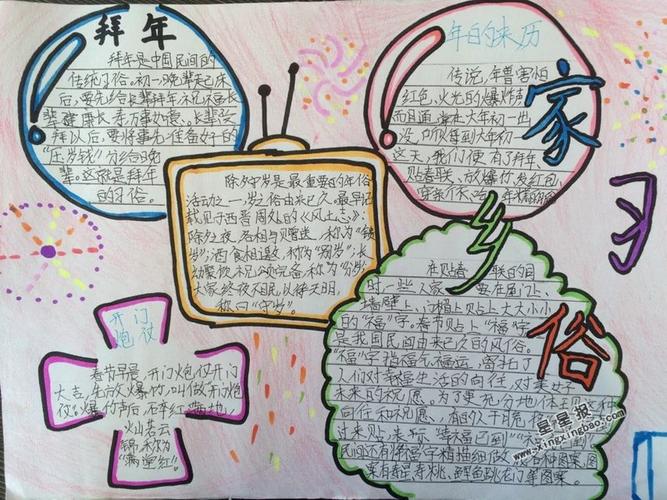 拜年
拜年是中国民间的
传统习俗。初一晚辈起床
后，要先给长辈拜年，祝福长
辈健康长寿万事如意。长辈受
拜以后，要将事先准备好的
“压岁钱”分给晚
辈。这就是拜年
的习俗。
年的来历
传说，年兽害怕
红色，火光的爆炸声
而且通常在大年初一出
没，所以每到大年初一
这天，我们便有了拜年、
贴春联、放爆竹、发红包，
家
乡
习
俗
除夕守岁是最重要的年俗
活动之一，岁之俗由来已久。最早记
载见于西晋周处的《风土志》：
除夕之夜，各相与赠送，称为“馈
岁”；酒食相邀，称为“别岁”；长
幼聚夜，祝颂完备，称为“分岁”；
大家终夜不眠，以待天明，
称曰“守岁”。
开门
炮仗
春节早晨，开门炮仗开门
大吉，先放爆竹，叫做开门炮
仗。爆竹声后，碎红满地，
火灿若云
锦，称为
“满堂红”。
在贴春联的同
时，一些人家要在屋门上、
墙壁上、门楣上贴上大大小小
的“福”字。春节贴上“福”字
是我国民间由来已久的风俗。
“福”字指福气、福运，寄托了
人们对幸福生活的向往，对美好
未来的祝愿。为了更充分地体现
向往和祝愿，有的人干脆
过来贴，表示“幸福已到”
民间还有将“福”字精描细做成各种图案，图
案有寿星、寿桃、鲤鱼跳龙门等图案。
星星报
www.xingxingbao.com